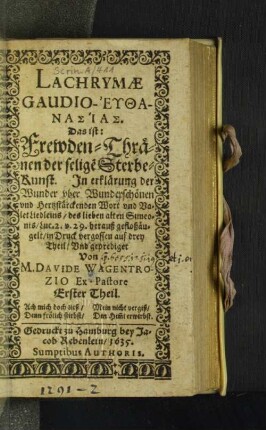 LACHRYMÆ
GAUDIO-ἘΥΘΑ-
ΝΑΣΊΑΣ.
Das ist:
Frewden-Thrä-
nen der selige Sterbe-
Kunst. In erklärung der
Wunder vber Wunderschönen
vnd Hertzstärckenden Wort vnd Va-
let Liedleins / des lieben alten Simeo-
nis / Luc. 2. v. 29. herauß
in Druck vergossen auff drey
Theil / Vnd geprediget
Von
M. DAVIDE WAGENTRO-
ZIO Ex-Pastore
Erster Theil.
Ach mich doch / Mein nicht vergiß /
Denn frölich stirbst / Den Himel erwirbst.
Gedruckt zu Hamburg bey Ja-
cob Rebenlein / 1635.
Sumptibus AUTHORIS.
1291-2